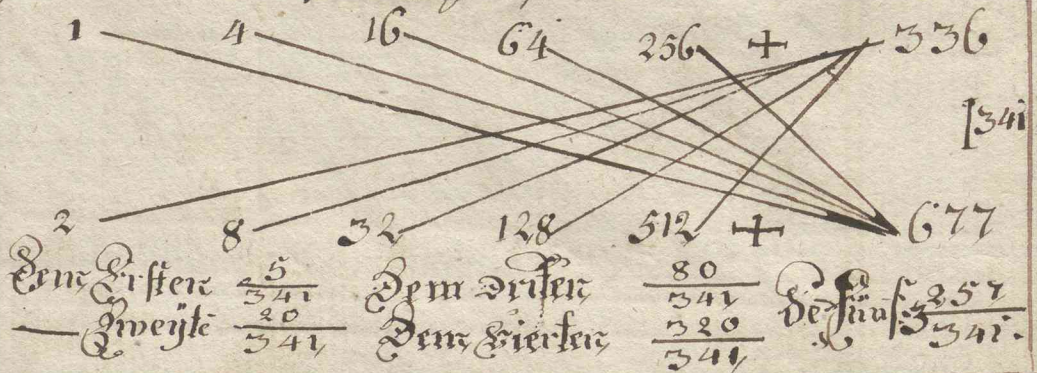 1 4 16 64 256 + 336
[341
2 8 32 128 512 + 677
Dem Ersten 5/341 Dem driten 80/341 dē Fünf: 3 257/341.
— Zweÿtē 20/341 Dem Vierten 320/341